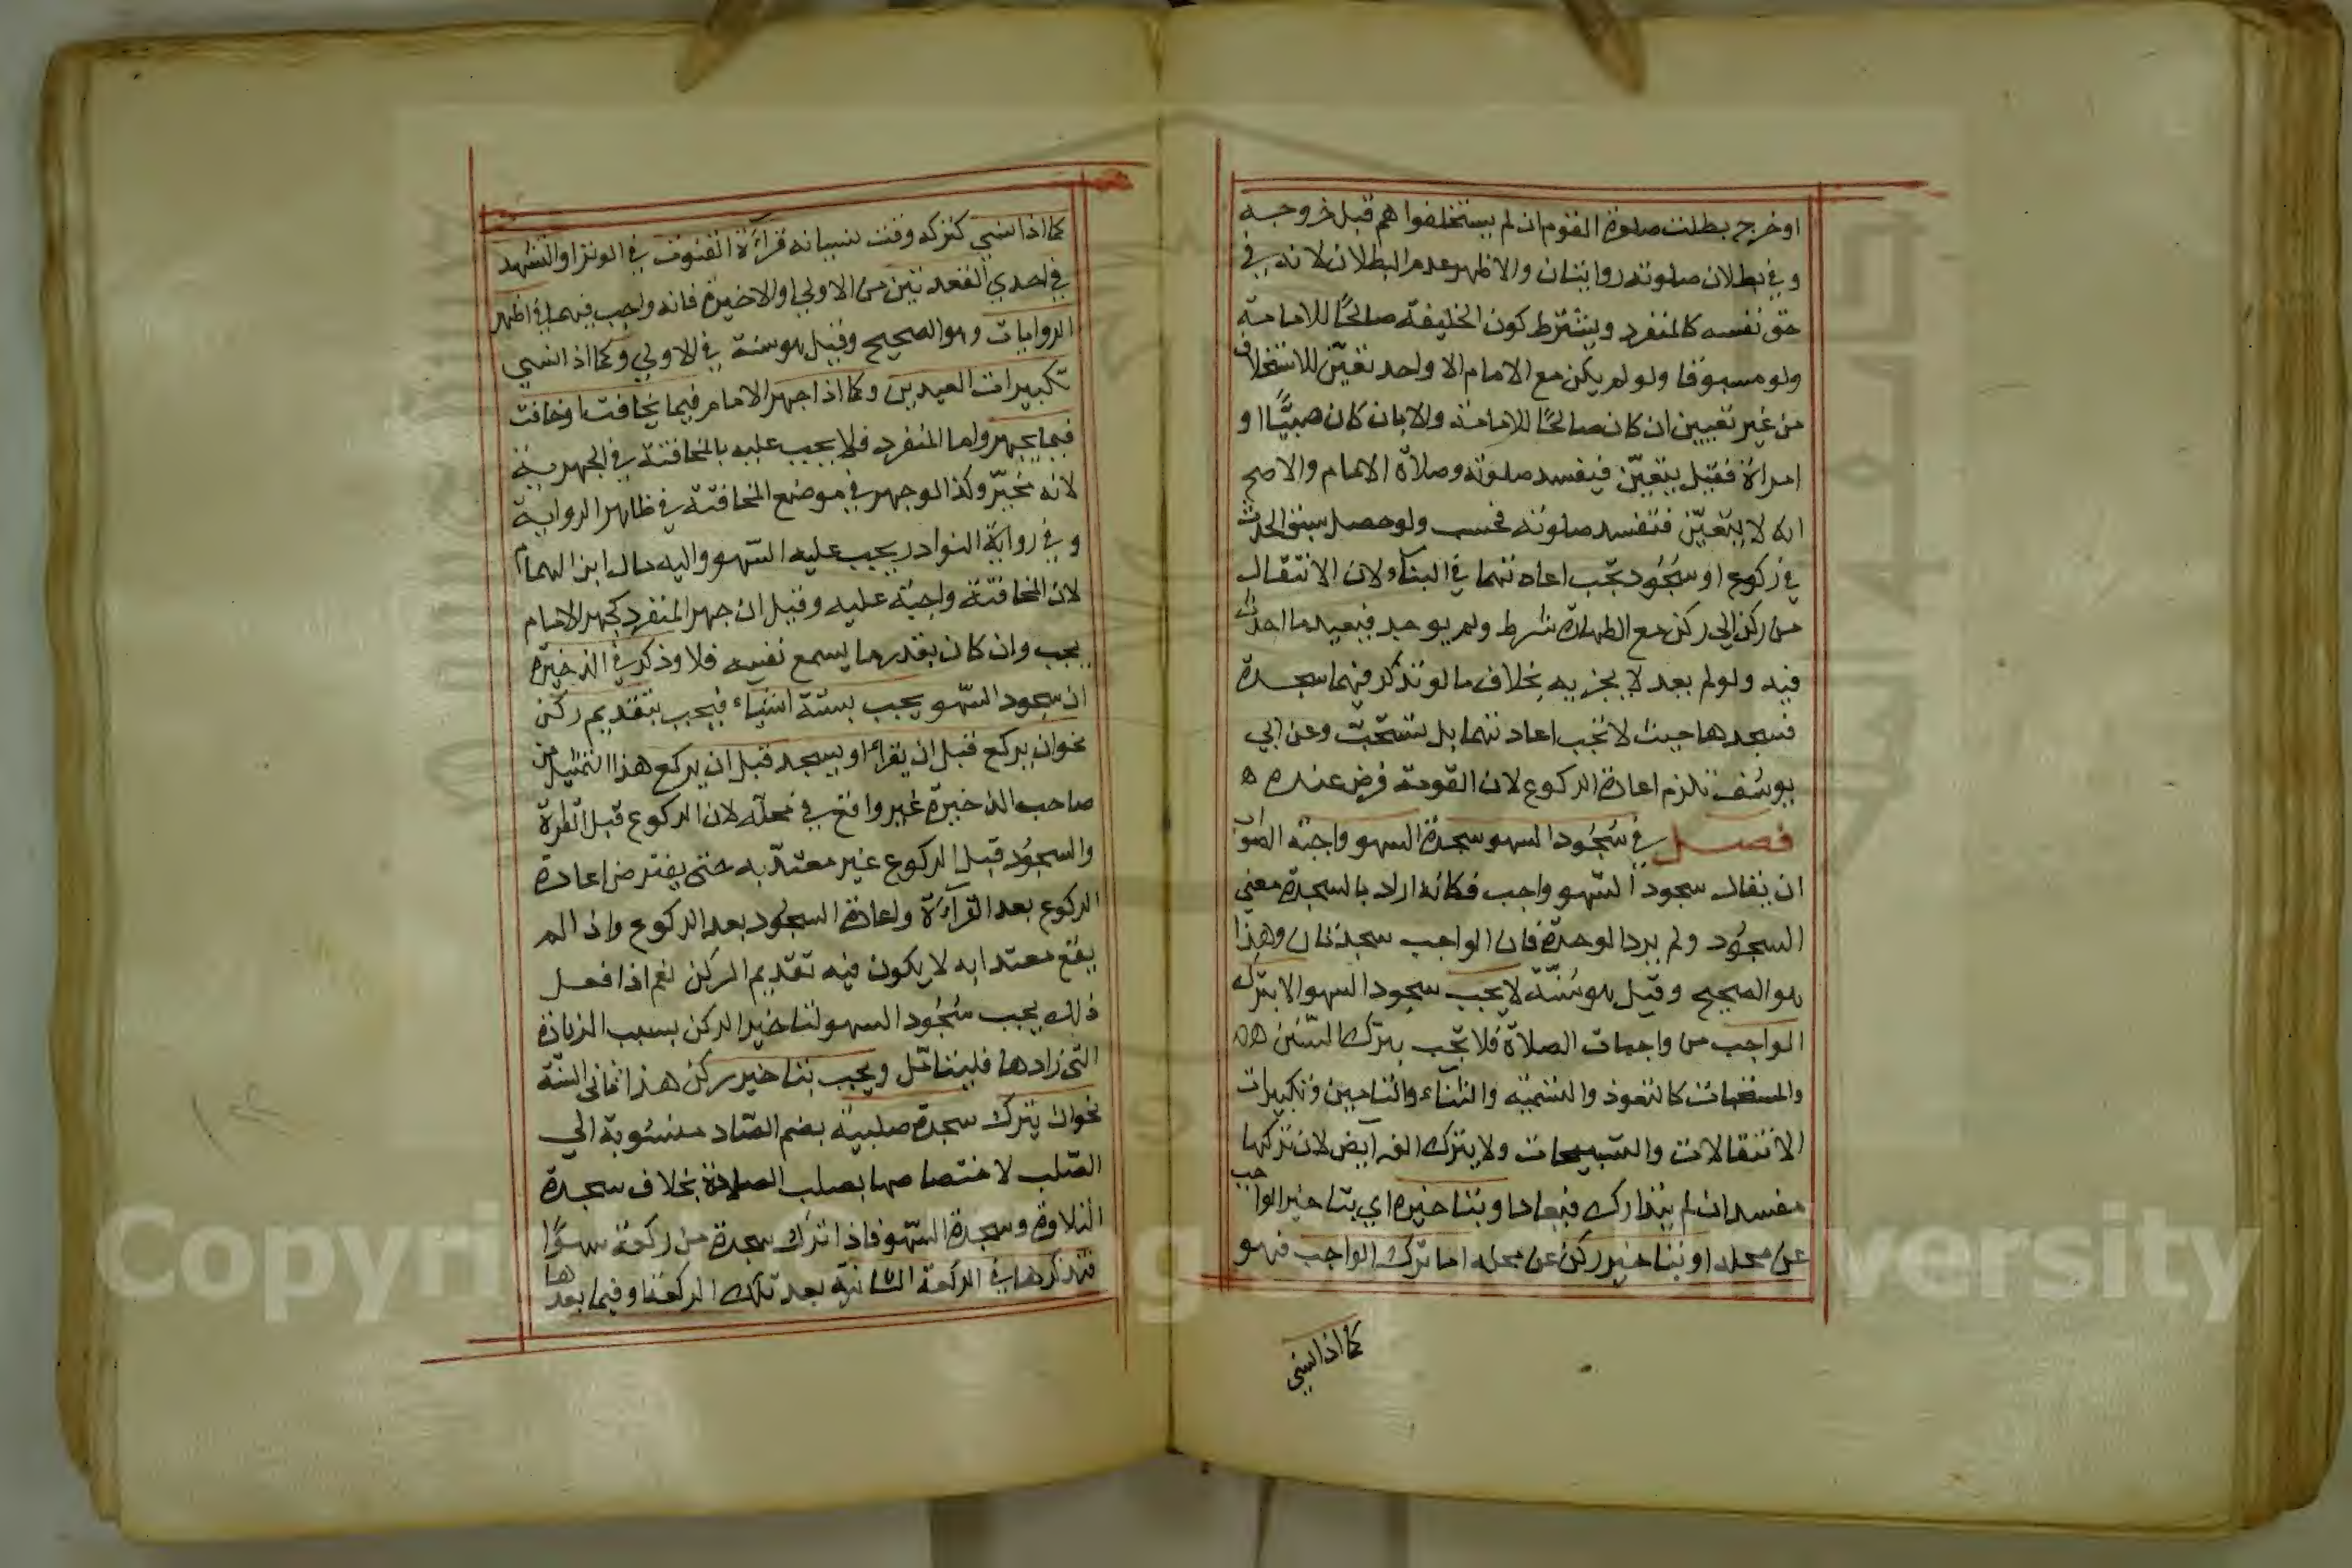 او خرج بطلت صلوة القوم ان لم يستخلفوا هم قبل خروجه
وفي بطلان صلوته روايتان والاظهر عدم البطلان لانه في
حق نفسه كالمنفرد ويشترط كون الخليفة صالحًا للامامة
ولو مسبوقا ولو لم يكن مع الامام الا واحد تعيّن للاستخلاف
من غير تعيين ان كان صالحًا للامامة والا بان كان صبيًّا او
امراة فقيل يتعيّن فيفسد صلوته وصلاة الامام والاصح
انه لا يتعيّن فتفسد صلوته فحسب ولو حصل سبق الحدث
في ركوع او سجُود تجب اعادتهما في البناء ولان الانتقال
من ركن الي ركن مع الطهارة شرط ولم يوجد فيعيد ما احدث
فيه ولو لم يعد لا يجزيه بخلاف ما لو تذكر فيهما سجدة
فسجدها حيث لا تجب اعادتهما بل تستحبّ وعن ابي
يوسُف تلزم اعادة الركوع لان القومة فرض عنده ه
فصل في سُجُود السهو سجدة السهو واجبة الصواب
ان يقال سجود السّهو واجب فكانه اراد بالسجدة معني
السجُود ولم يرد الوحدة فان الواجب سجدتان وهذا
هو الصحيح وقيل هو سُنّة لا يجب سجود السهو الا بترك
الواجب من واجبات الصلاة فلا تجب بترك السّنن هه
والمستحبات كالتعوذ والتسمية والثناء والتامين وتكبيرات
الانتقالات والتسبيحات ولا بترك الفرآيض لان تركها
مفسد ان لم يتدارك فيعاد او بتاخيره اي بتاخير الواجب
عن محله او بتاخير ركن عن محله اما ترك الواجب فهو
كما اذا نسي
كما اذا نسي كتركه وقت نسيانه قرآءة القنوت في الوتر او التشهد
في احدي القعدتين من الاولي او الاخيرة فانه واجب فيهما في اظهر
الروايات وهو الصحيح وقيل هو سنة في الاولي وكما اذا نسي
تكبيرات العيدين وكما اذا جهر الامام فيما يخافت او خافت
فيما يجهر واما المنفرد فلا يجب عليه بالمخافتة في الجهرية
لانه مخيّر وكذا لو جهر في موضع المخافتة في ظاهر الرواية
وفي رواية النوادر يجب عليه السّهو واليه مال ابن الهمام
لان المخافتة واجبة عليه وقيل ان جهر المنفرد كجهر الامام
يجب وان كان بقدر ما يسمع نفسه فلا وذكر في الذخيرة
ان سجود السّهو يجب بستة اشياء فيجب بتقديم ركن
نحو ان يركع قبل ان يقراء او يسجد قبل ان يركع هذا التمثيل من
صاحب الذخيرة غير واقع في محله لان الركوع قبل القراءة
والسجُود قبل الركوع غير معتدّ به حتي يفترض اعادة
الركوع بعد القرآءة واعادة السجُود بعد الركوع واذا لم
يقع معتدا به لا يكون فيه تقديم الركن نعم اذا فعل
ذلك يجب سُجُود السهو لتاخير الركن بسبب الزيادة
التي زادها فليتامّل ويجب بتاخير ركن هذا ثاني الستة
نحو ان يترك سجدة صلبية بضم الصّاد منسُوبة الي
الصّلب لاختصاصها بصلب الصلاة بخلاف سجدة
التلاوة وسجدة السّهو فاذا ترك سجدة من ركعة سهوًا
فتذكرها في الركعة الثانية بعد تلك الركعة او فيما بعدها